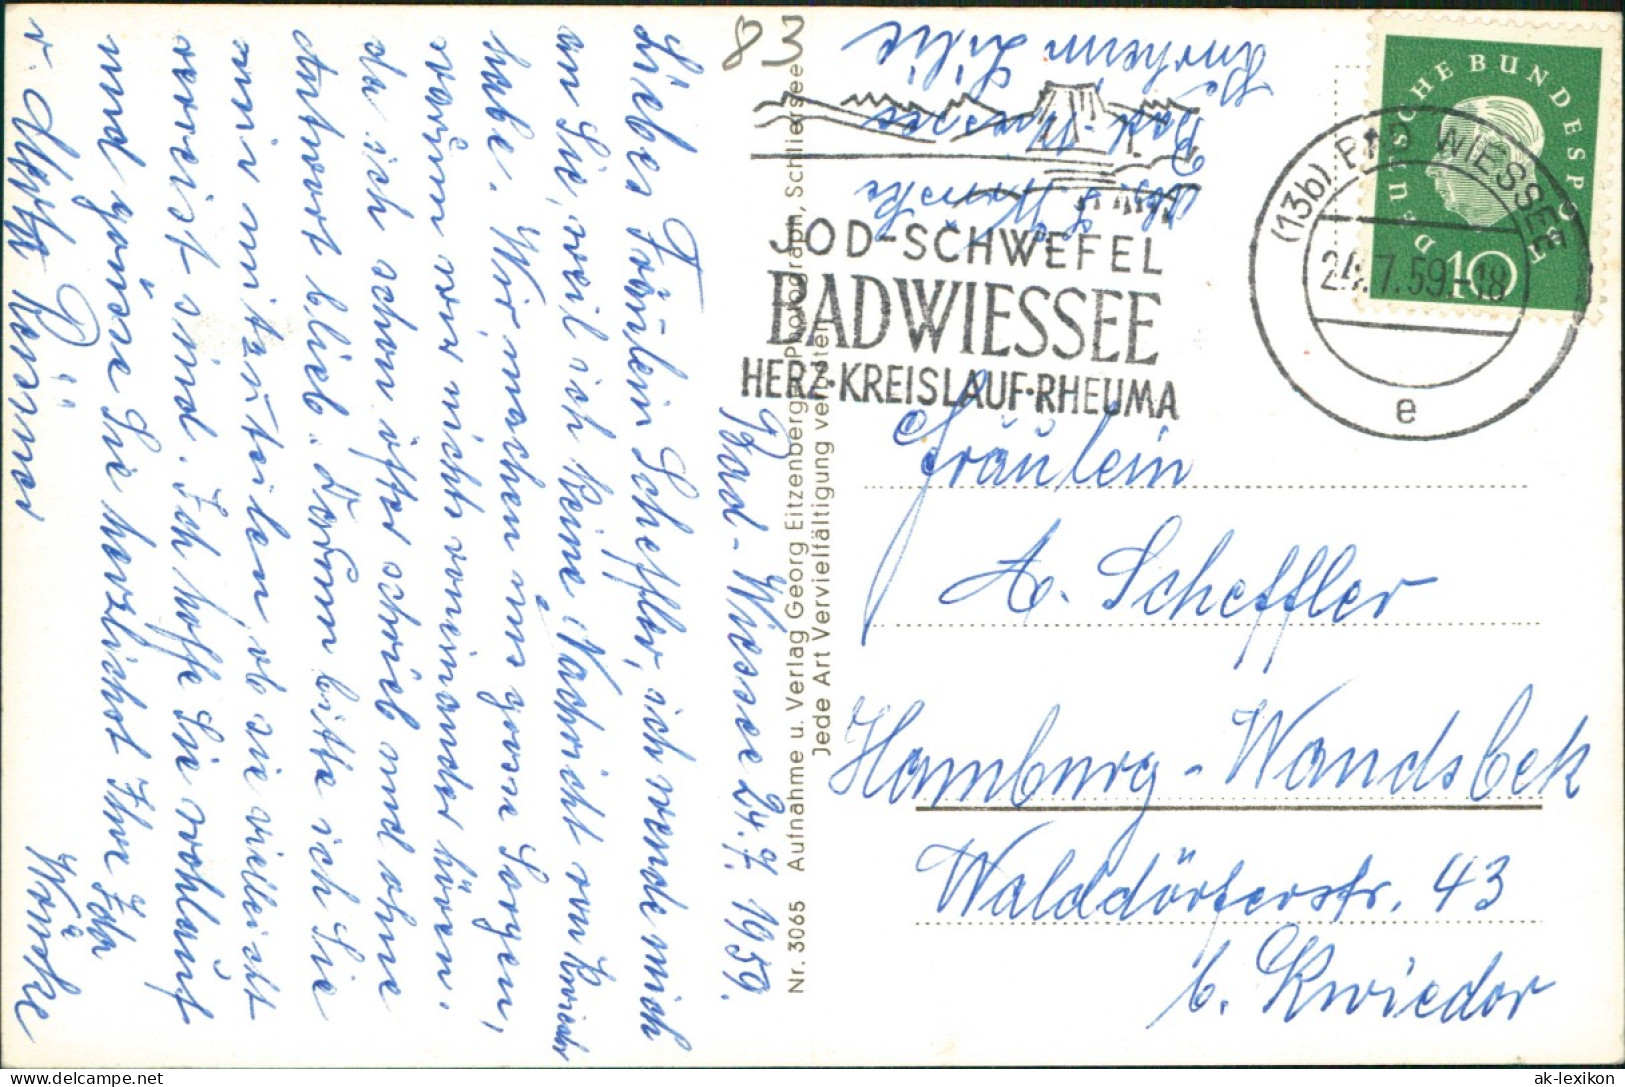 83
Kurheim Lilie
Bad Wiessee
Abs. Wunske
JOD-SCHWEFEL
BAD WIESSEE
HERZ·KREISLAUF·RHEUMA
(13b) BAD WIESSEE
24.7.59.-18
e
DEUTSCHE BUNDESPOST
10
Bad-Wiessee 24.7.1959.
Liebes Fräulein Scheffler, ich wende mich
an Sie, weil ich keine Nachricht von Kwiedor
habe. Wir machen uns gern Sorgen,
warum wir nichts voneinander hören.
da ich schon öfter schrieb und ohne
Antwort blieb. Darum bitte ich Sie
mir mitzuteilen, ob sie vielleicht
verreist sind. Ich hoffe Sie wohlauf
und grüsse Sie herzlichst Ihre Ida
Wunske
Nr. 3065 Aufnahme u. Verlag Georg Eitzenberger, Photograph, Schliersee
Jede Art Vervielfältigung verboten
Fräulein
A. Scheffler
Hamburg-Wandsbek
Walddörferstr. 43
b. Kwiedor
ak-lexikon